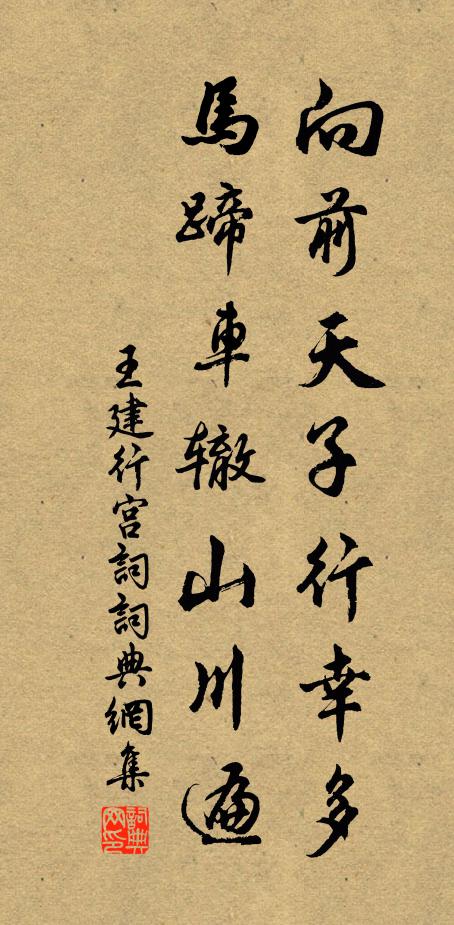 向前天子行幸多
馬蹄車辙山川遍
王建行宮詞詞典網集
詞典网印